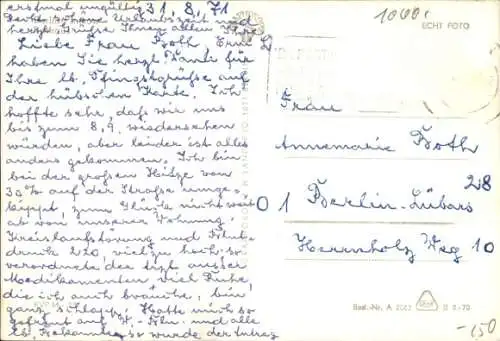 erstmal ungültig 31.8.71
schöne Urlaubszeit und
herzl. Grüße Ihnen allen Ihre
Liebe Frau Both,
haben Sie herzl. Dank für
Ihre lb. Pfingstgrüße auf
der hübschen Karte. Ich
hoffte sehr, daß wir uns
bis zum 8.9. wiedersehen
würden, aber leider ist alles
anders gekommen. Ich bin
bei der großen Hitze von
30° auf der Straße umge-
kippt, zum Glück nicht weit
ab von unserer Wohnung.
Kreislaufstörung und Blut-
druck 220, viel zu hoch, so
verordnete der Arzt ausser
Medikamenten viel Ruhe,
die ich auch brauche, bin
ganz schlapp. Hatte mich so
gefreut auf und alle
lb. Bekannten, so wurde der
1000
ECHT FOTO
Frau
Annemarie Both
28
1 Berlin-Lübars
Herrnholz Weg 10
Best.-Nr. A
-150